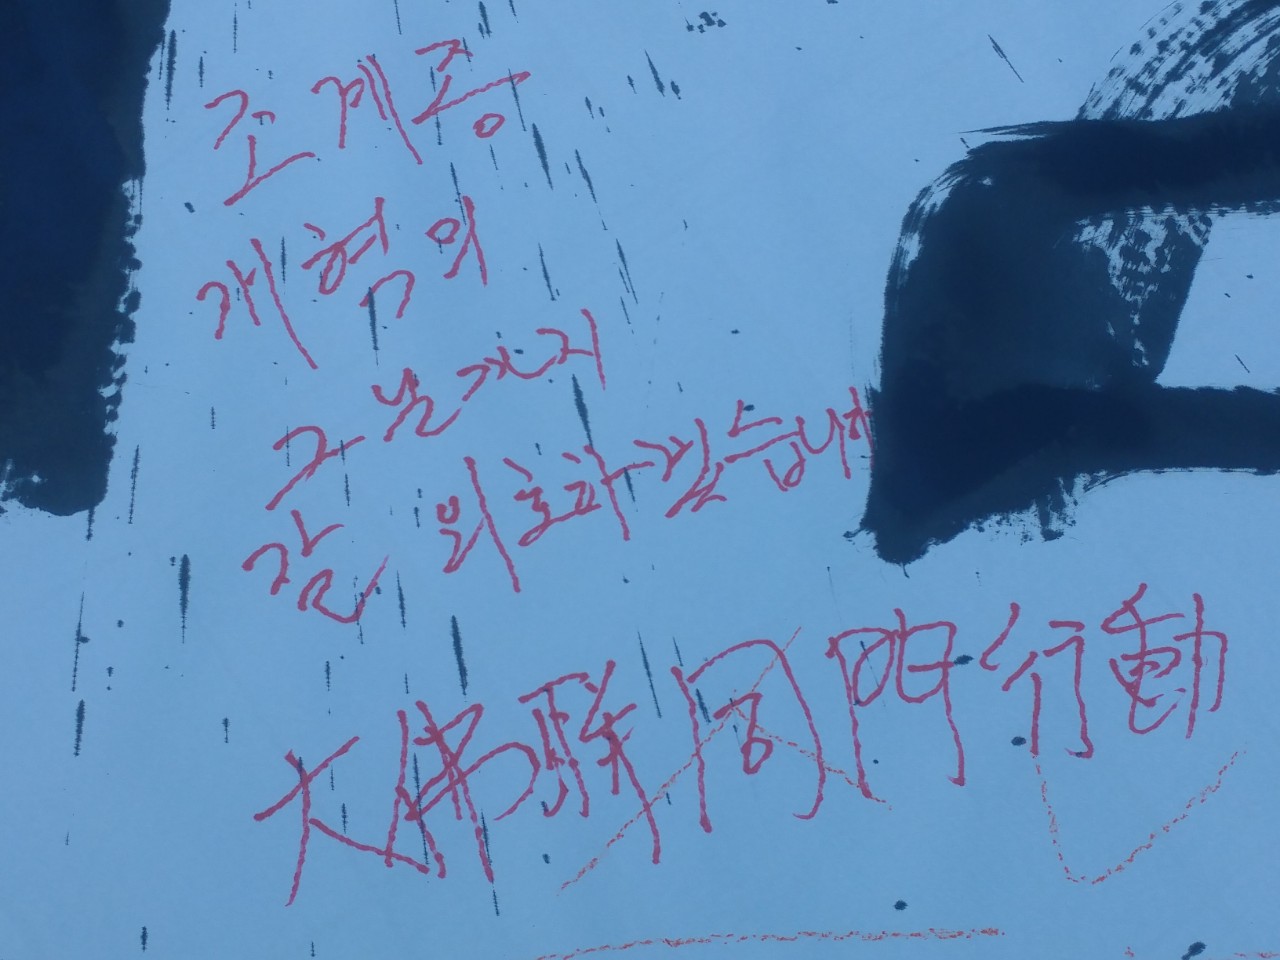 조계종
개혁의
그날까지
같이하겠습니다
大佛聯同門行動